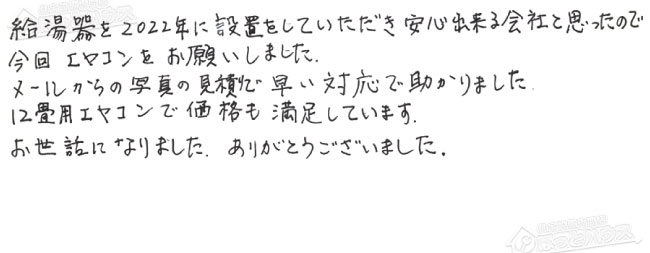 給湯器を2022年に設置をしていただき安心出来る会社と思ったので
今回エヤコンをお願いしました.
メールからの写真の見積りで早い対応で助かりました.
12畳用エヤコンで価格も満足しています.
お世話になりました. ありがとうございました.